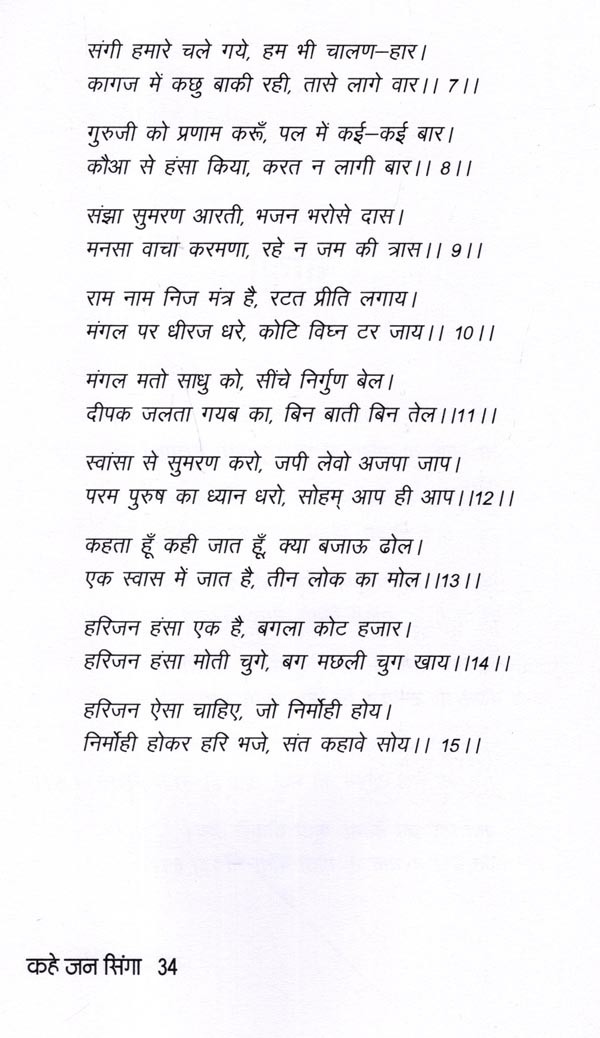 संगी हमारे चले गये, हम भी चालण–हार।
कागज में कछु बाकी रही, तासे लागे वार।। 7।।
गुरुजी को प्रणाम करूँ, पल में कई–कई बार।
कौआ से हंसा किया, करत न लागी बार।। 8।।
संझा सुमरण आरती, भजन भरोसे दास।
मनसा वाचा करमणा, रहे न जम की त्रास।। 9।।
राम नाम निज मंत्र है, रटत प्रीति लगाय।
मंगल पर धीरज धरे, कोटि विघ्न टर जाय।। 10।।
मंगल मतो साधु को, सींचे निर्गुण बेल।
दीपक जलता गयब का, बिन बाती बिन तेल।।11।।
स्वांसा से सुमरण करो, जपी लेवो अजपा जाप।
परम पुरुष का ध्यान धरो, सोहम् आप ही आप।।12।।
कहता हूँ कही जात हूँ, क्या बजाऊ ढोल।
एक स्वास में जात है, तीन लोक का मोल।।13।।
हरिजन हंसा एक है, बगला कोट हजार।
हरिजन हंसा मोती चुगे, बग मछली चुग खाय।।14।।
हरिजन ऐसा चाहिए, जो निर्मोही होय।
निर्मोही होकर हरि भजे, संत कहावे सोय।। 15।।
कहे जन सिंगा 34